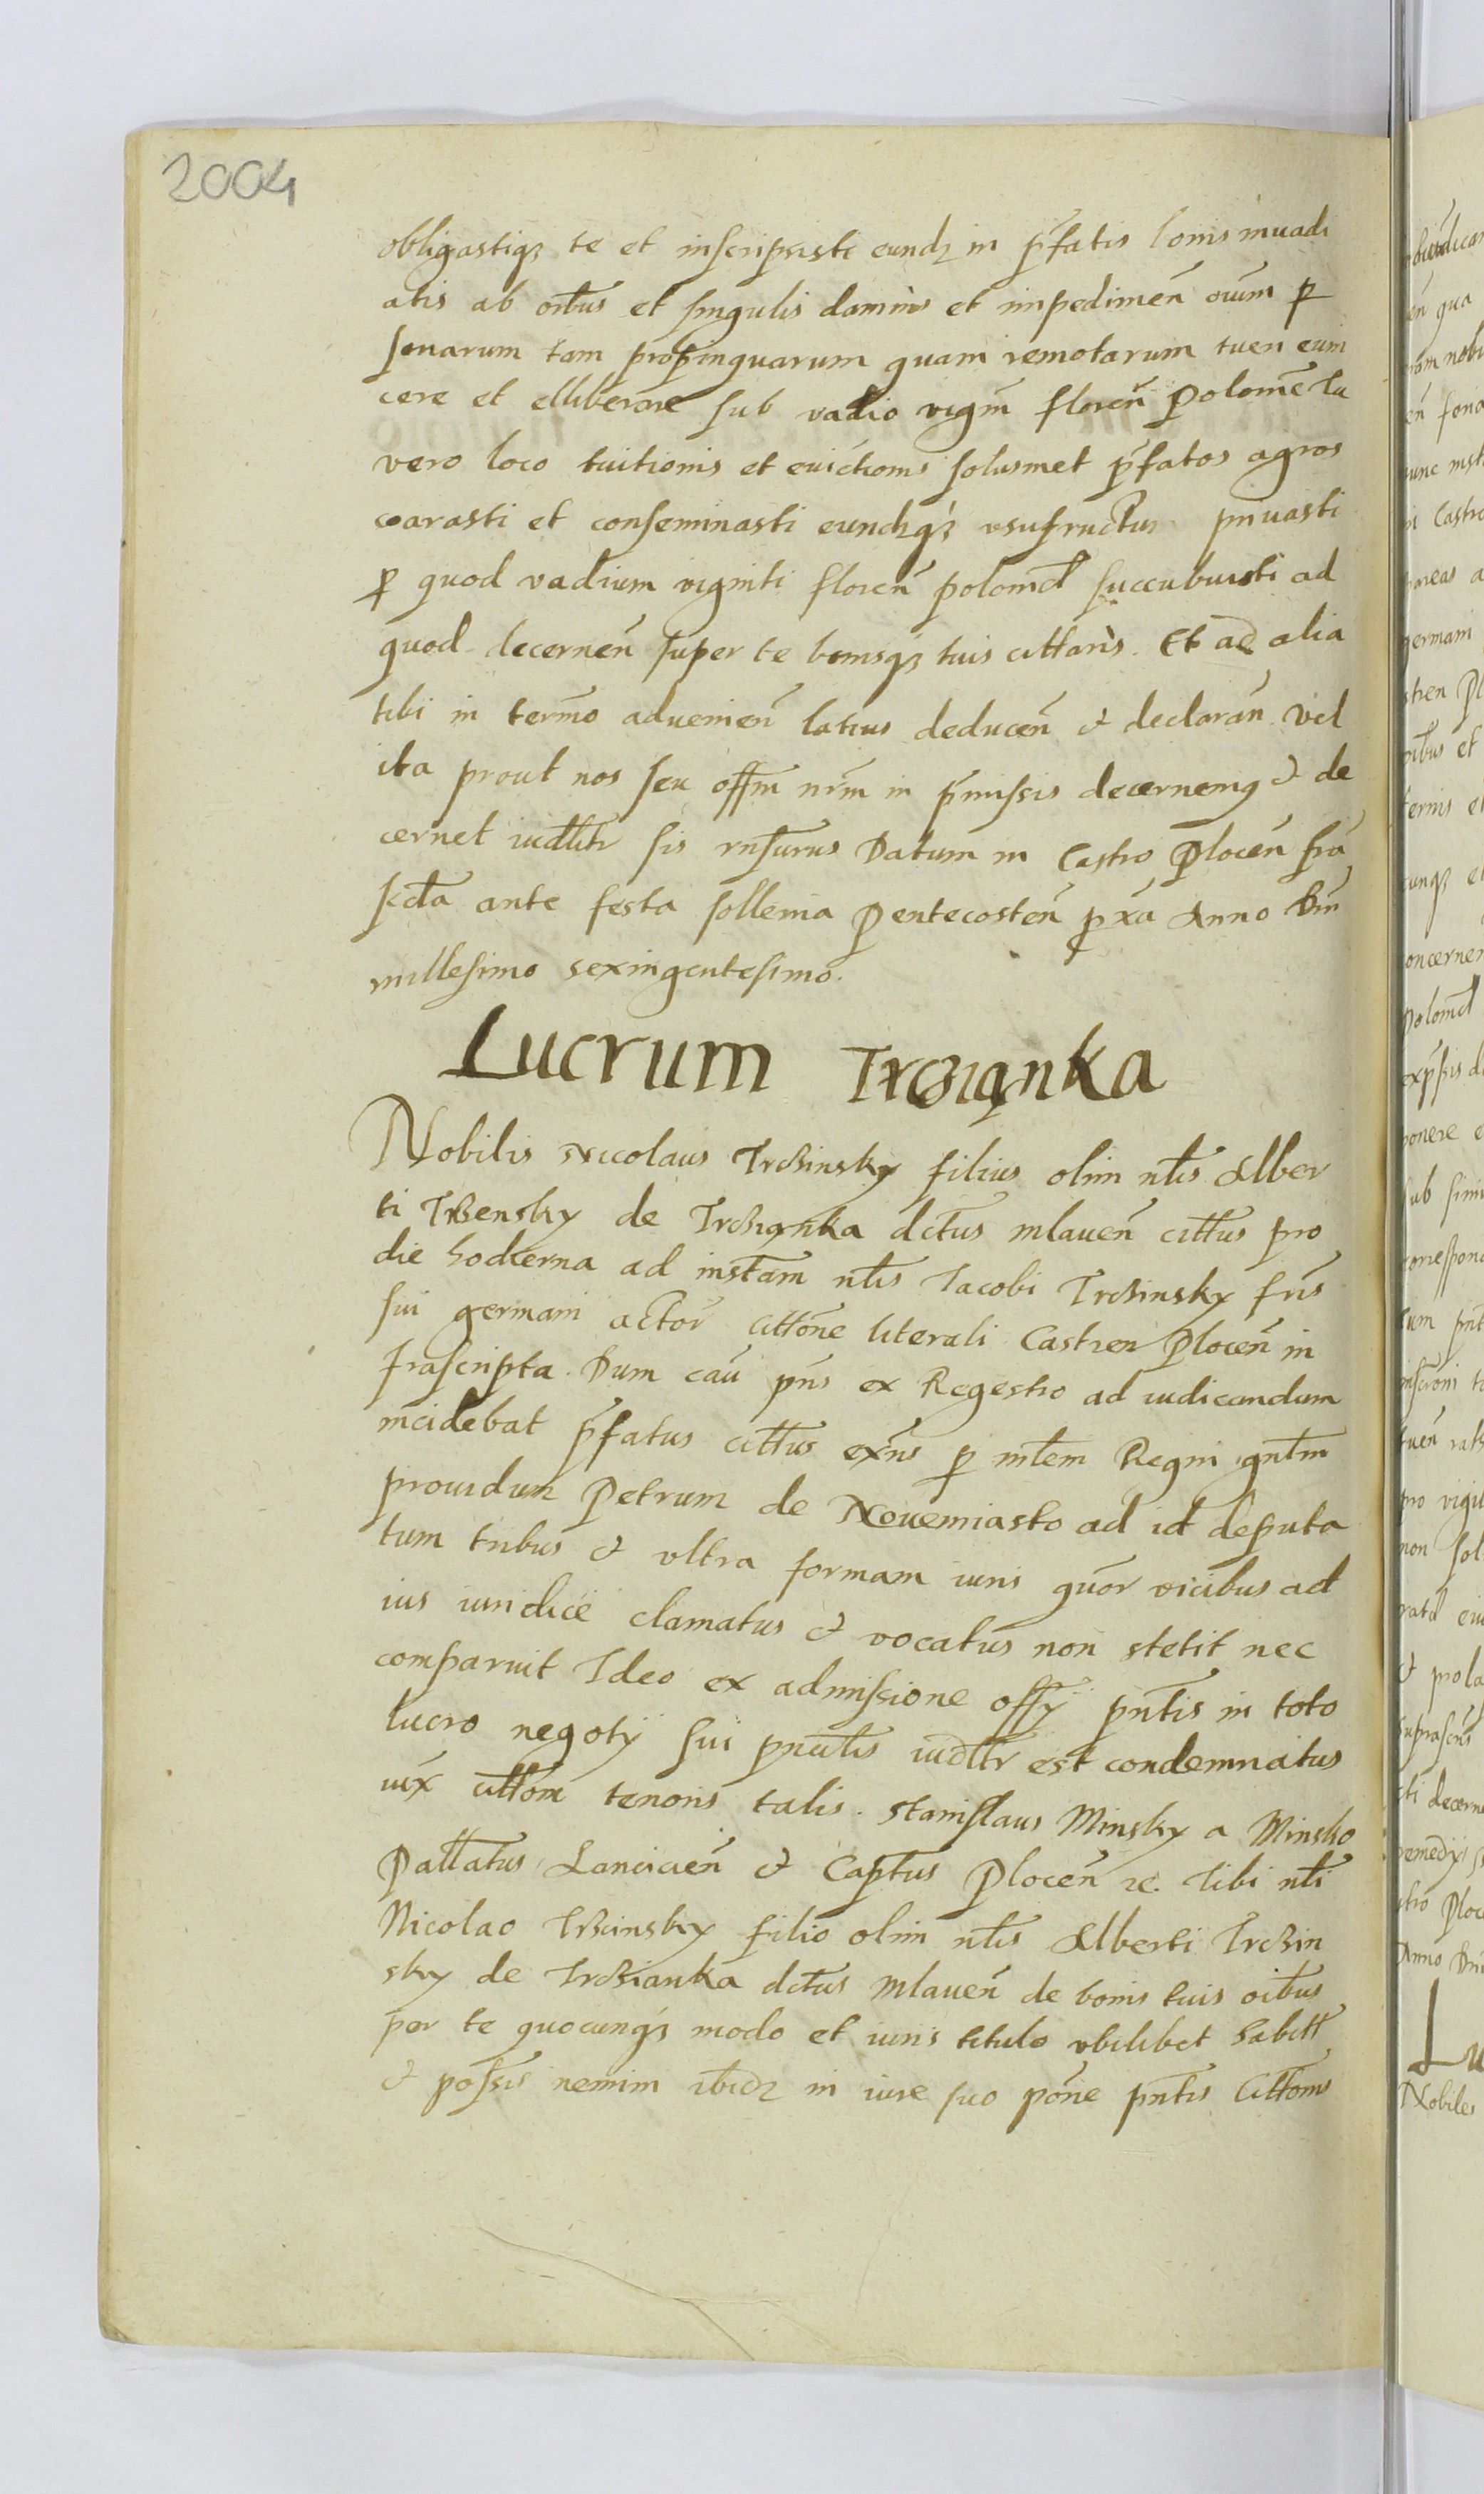 2004
obligastiqꝫ te et inscripsisti eundꝫ in p̄fatis bonis inuadi
atis ab oībus et singulis damnis et impedimen̄ oīum ꝑ
sonarum tam propinquarum quam remotarum tuen euin
cere et elliberare sub vadio vigin̄ floren̄ Polonie Tu
vero loco tuitionis et euictionis solusmet p̄fatos agros
coarasti et conseminasti eundꝫqꝫ vsufructu priuasti
ꝑ quod vadium viginti floren̄ polonicl succubuisti ad
quod decernen̄ super te bonisqꝫ tuis cittaris. Et ad alia
tibi in termō aduenien̄ latius deducen̄ & declaran̄ vel
ita prout nos seu offm nrm in p̄missis decernemꝰ & de
cernet iudlitr sis rn̄surus Datum in Castro Plocen̄ fr̄a
scda ante festa sollenia Pentecosten̄ ꝓxa Anno Dni
millesimo sexingentesimo.
Lucrum Trczianka
Nobilis Nicolaus Trczinsky filius olim nlis Alber
ti Trzensky de Trczianka dctus mlauen̄ cittus pro
die hodierna ad instam nlis Iacobi Trczinsky fris
sui germani actor cittone literali Castren Plocen̄ in
frascripta. Dum cau p̄ns ex Regestro ad iudicandum
incidebat p̄fatus cittus exn̄s ꝑ mlem Regni gnlm
prouidum Petrum de Nouemiasto ad id deputa
tum tribus & vltra formam iuris quor vicibus ad
ius iuridice clamatus & vocatus non stetit nec
comparuit Ideo ex admissione offy p̄ntis in toto
lucro negotij sui p̄ntis iudltr est condemnatus
iux cittom tenoris talis. Stanislaus Minsky a Minsko
Pallatus Lancicien̄ & Captus Plocen̄ ꝛc. Tibi nli
Nicolao Trzcinsky filio olim nlis Alberti Trczin
sky de Trczianka dctus Mlauen̄ de bonis tuis oibus
per te quocunqꝫ modo et iuris titulo vbilibet habitt
& possis nemini ibidꝫ in iure suo pone p̄ntis Cittoms